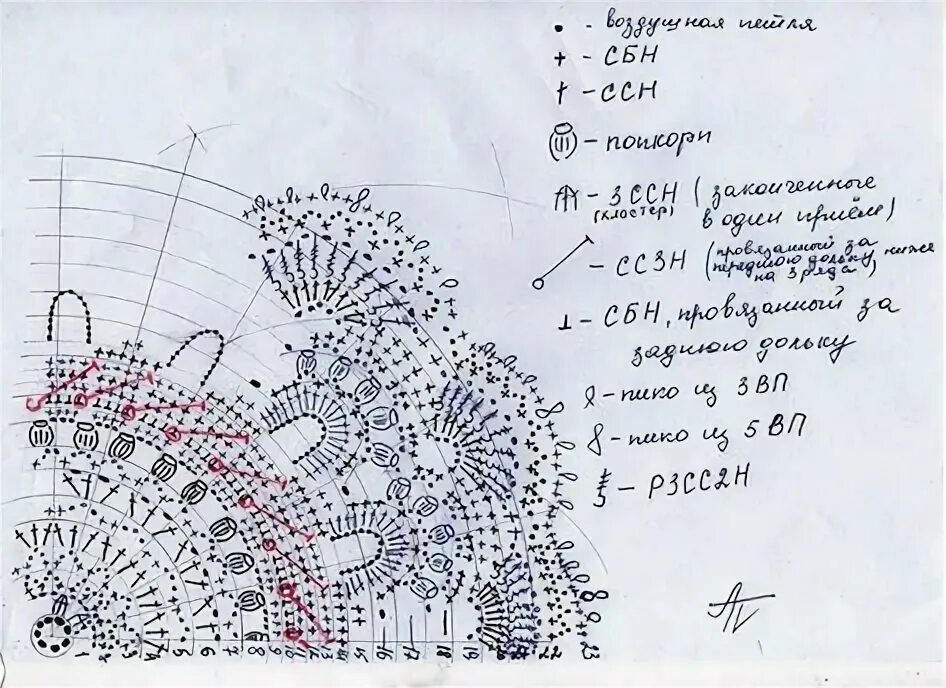 • - воздушная петля
+ - СБН
† - ССН
- попкорн
- 3ССН (законченные
(кластер) в один приём)
- СС3Н (провязанный за
переднюю дольку ниже
на 3 ряда)
⊥ - СБН, провязанный за
заднюю дольку
- пико из 3ВП
8 - пико из 5ВП
- Р3СС2Н
1 3 4 5 6 7 8 9 10 11 12 13 14 15 16 17 18 19 20 21 22 23